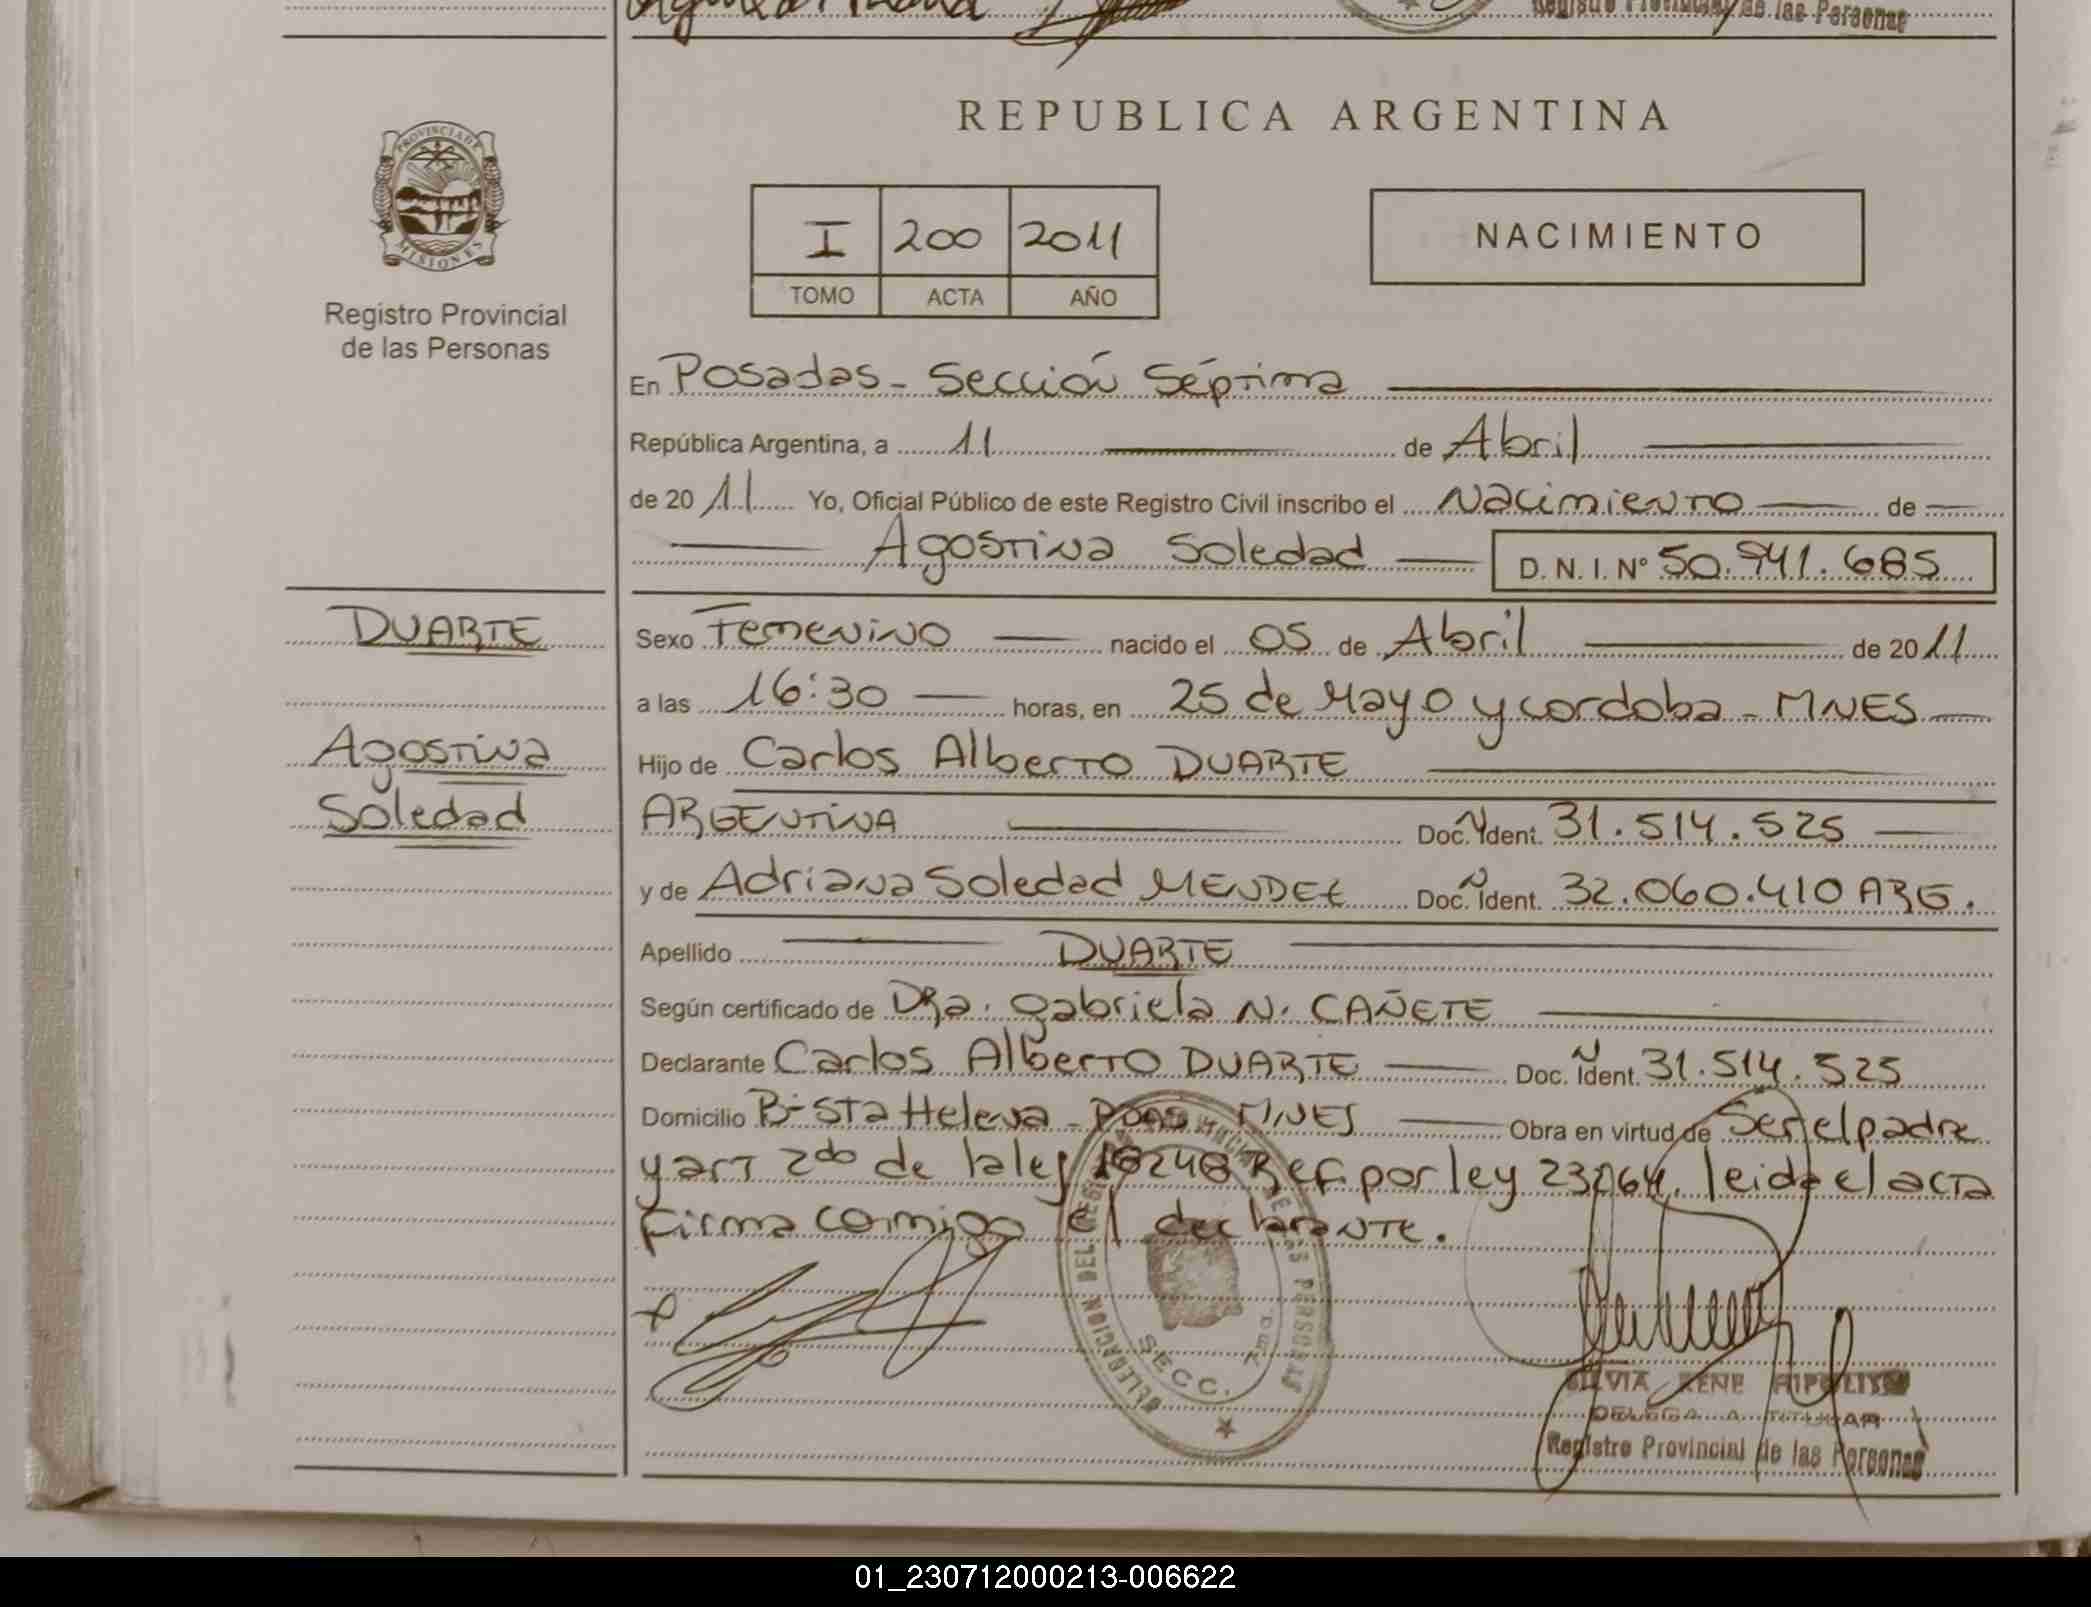 Registro Provincial de las Personas
PROVINCIA DE
MISIONES
Registro Provincial
de las Personas
REPUBLICA ARGENTINA
I 200 2011
TOMO ACTA AÑO
NACIMIENTO
En Posadas - Sección Séptima
República Argentina, a 11 de Abril
de 2011 Yo, Oficial Público de este Registro Civil inscribo el Nacimiento de
Agostina Soledad D. N. I. Nº 50.941.685
DUARTE
Agostina
Soledad
Sexo Femenino nacido el 05 de Abril de 2011
a las 16:30 horas, en 25 de Mayo y cordoba - MNES
Hijo de Carlos Alberto DUARTE
ARGENTINA Doc. Ident. 31.514.525
y de Adriana Soledad MENDEZ Doc. Ident. 32.060.410 ARG.
Apellido DUARTE
Según certificado de Dra. Gabriela N. CAÑETE
Declarante Carlos Alberto DUARTE Doc. Ident. 31.514.525
Domicilio Bº Sta Helena - Pdas MNES Obra en virtud de Ser el padre
y art 2do de la ley 18248 Ref por ley 23264, leida el acta
firma comigo el declarante.
DELEGACION DEL REGISTRO DE LAS PERSONAS
SECC. 7ma.
SILVIA RENE RIPOLI
DELEGADA TITULAR
Registro Provincial de las Personas
01_230712000213-006622